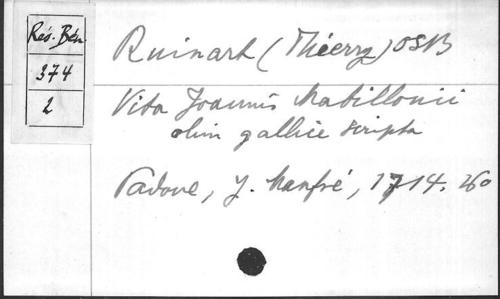 Rés. Bén
374
2
Ruinart (Thierry) OSB
Vita Joannis Mabillonii
olim gallice scripta
Padoue, J. Manfré, 1714. 26o